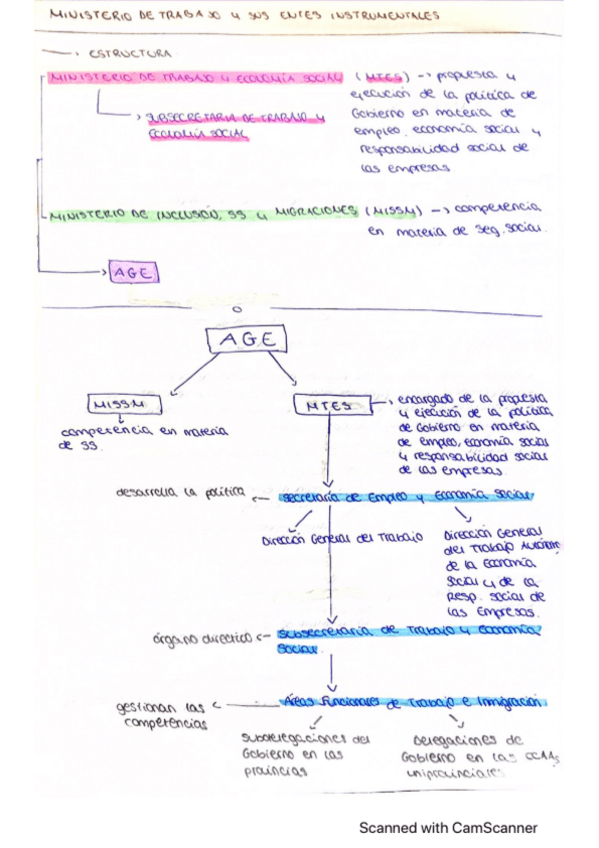 MINISTERIO DE TRABAJO y SUS ENTES INSTRUMENTALES
→ ESTRUCTURA
MINISTERIO DE TRABAJO y ECONOMÍA SOCIAL (MTES) → propuesta y
ejecución de la política de
Gobierno en materia de
empleo, economía social y
responsabilidad social de
las empresas
→ SUBSECRETARIA DE TRABAJO y
ECONOMÍA SOCIAL
MINISTERIO DE INCLUSIÓN, SS y MIGRACIONES (MISSM) → competencia
en materia de Seg. Social.
AGE
AGE
MISSM
competencia en materia
de SS.
MTES
encargado de la propuesta
y ejecución de la política
de Gobierno en materia
de empleo, economía social
y responsabilidad social
de las empresas.
desarrolla la política ← Secretaría de Empleo y Economía Social
Dirección General del Trabajo
Dirección General
del Trabajo Autónomo
de la Economía
Social y de la
Resp. Social de
las Empresas.
órgano directivo ← Subsecretaría de Trabajo y Economía
Social.
gestionan las
competencias
Áreas Funcionales de Trabajo e Inmigración.
Subdelegaciones del
Gobierno en las
provincias
Delegaciones de
Gobierno en las CCAAs
uniprovinciales
Scanned with CamScanner